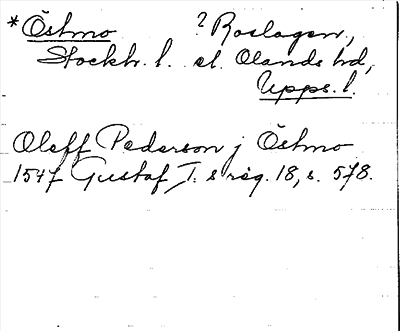 *Östmo ? Roslagen,
Stockh. l. el. Olands hd,
Upps. l.
Oleff Pederson j Östmo
1547 Gustaf I:s reg. 18, s. 578.